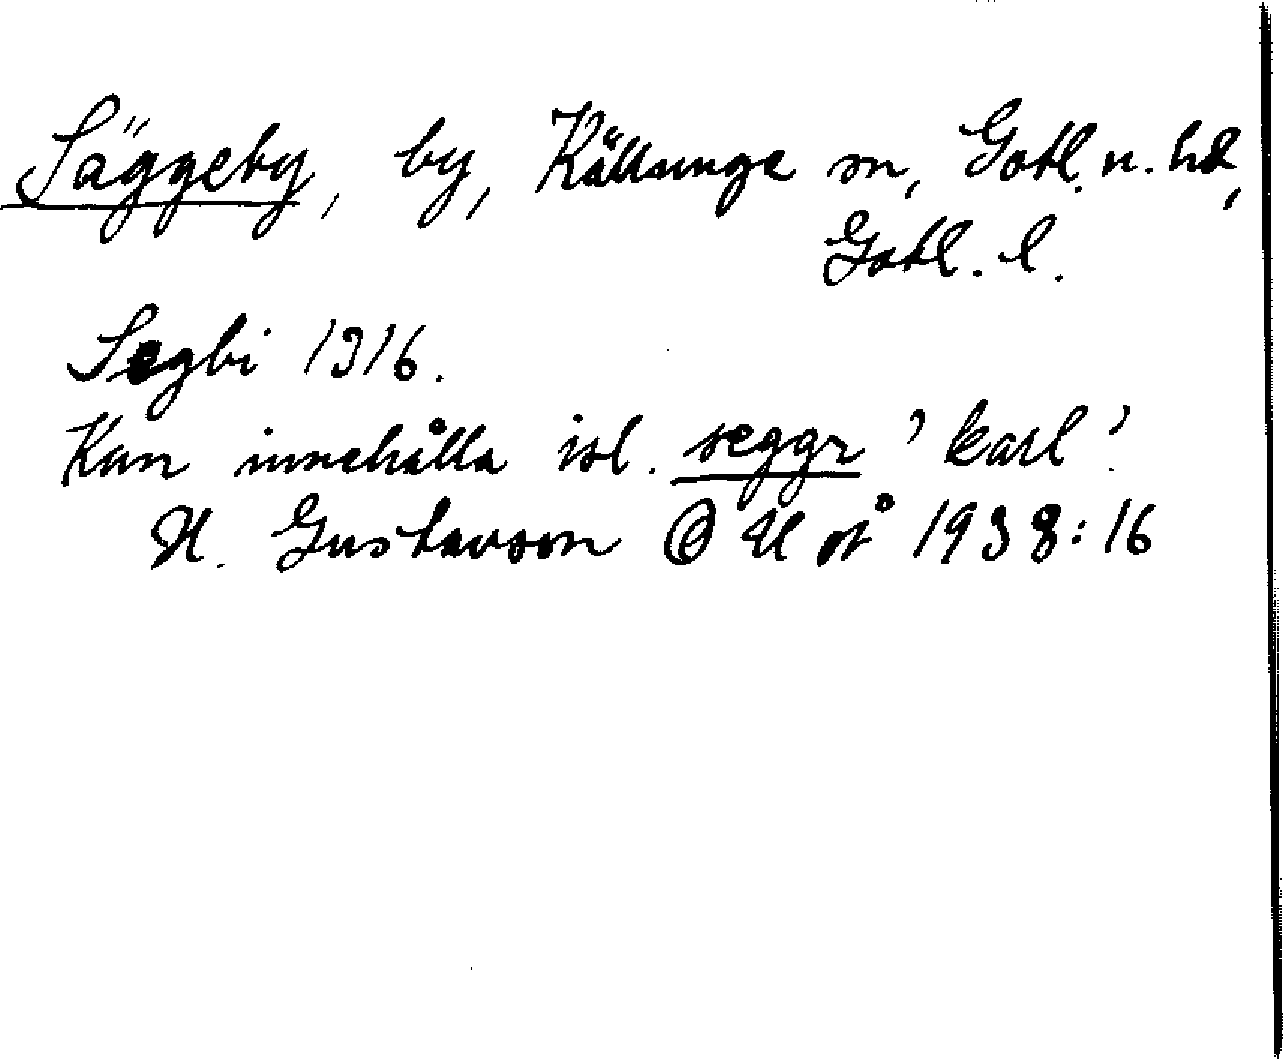 Säggeby, by, Källunge sn, Gotl. n. hd,
Gotl. l.
Segbi 1316.
Kan innehålla isl. seggr 'karl'.
H. Gustavson 1938:16